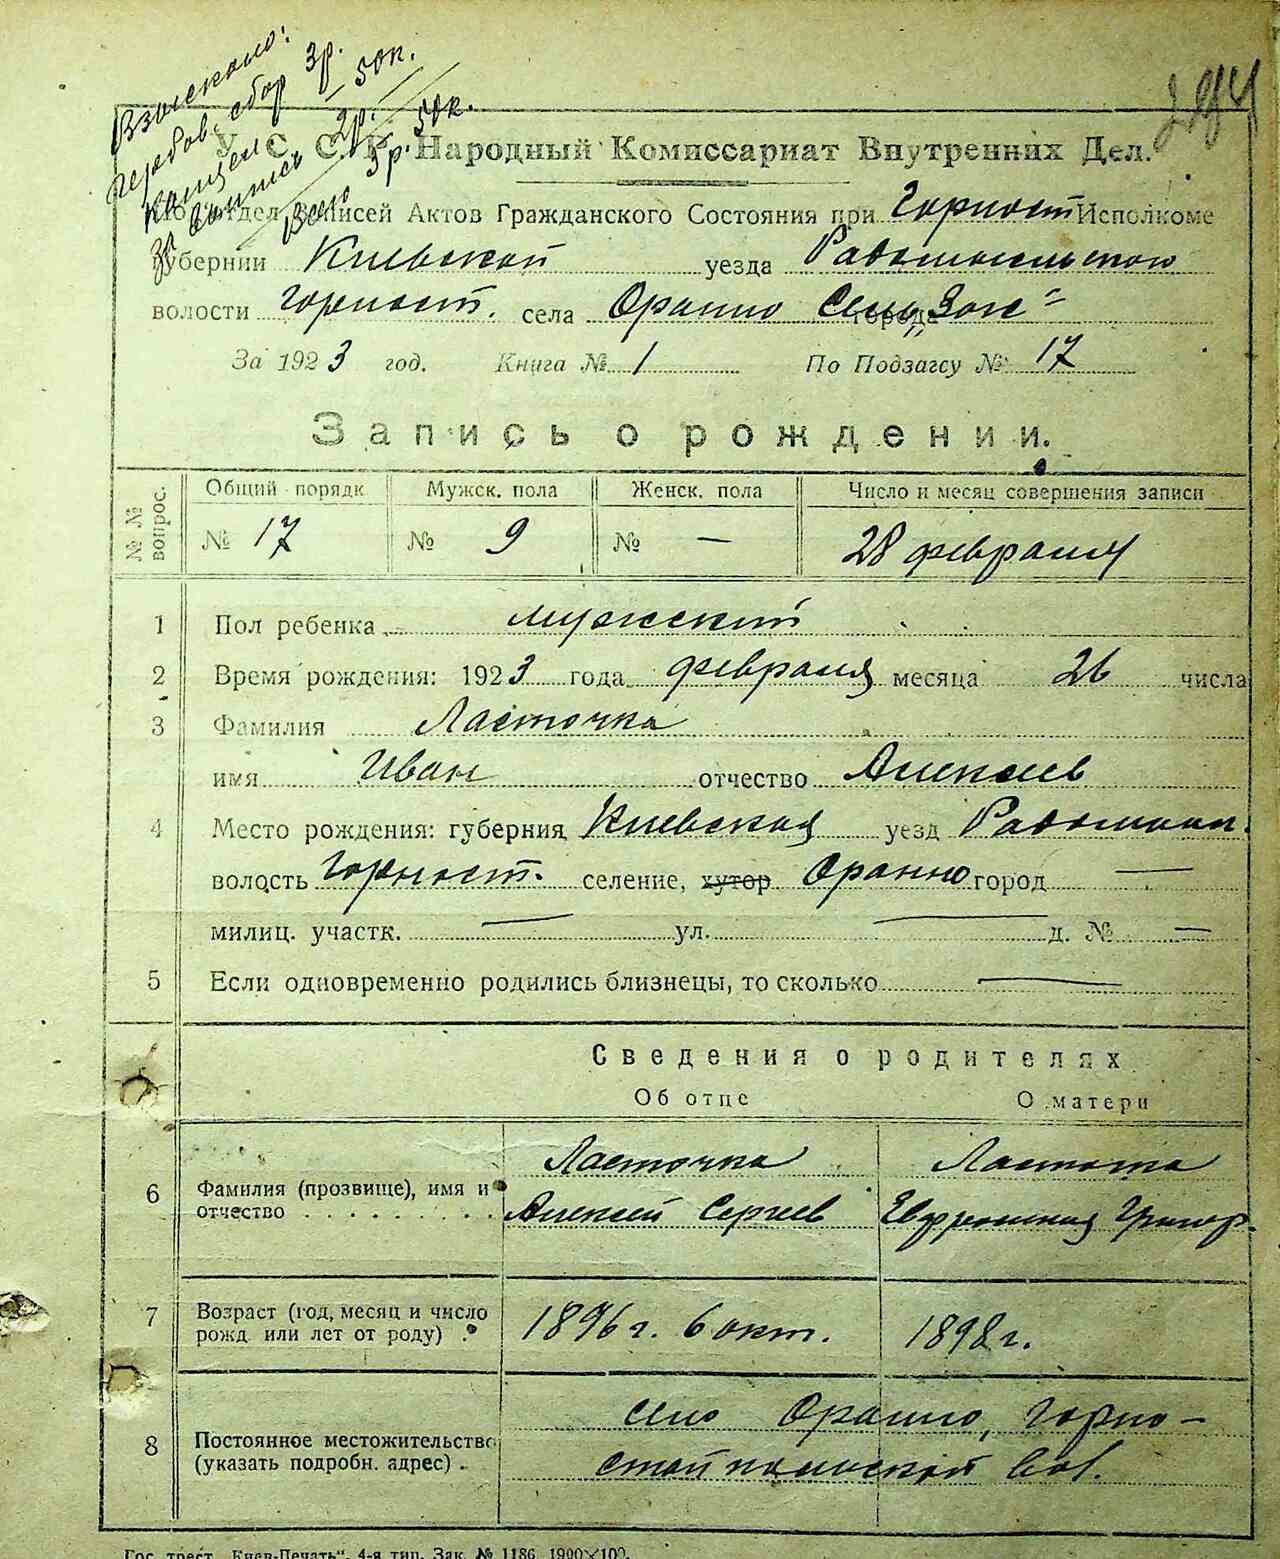 Взыскано:
гербов. сбор 3р.
Канцел. — 50к.
за бланк 2р.
Всего 3р. 50к.
294
У. С. С. Р. Народный Комиссариат Внутренних Дел.
Отдел Записей Актов Гражданского Состояния при Горност Исполкоме
губернии Киевской уезда Радомысльского
волости Горност. села Оранно города
За 1923 год. Книга № 1 По Подзагсу № 17
Запись о рождении.
№ № вопрос.
Общий порядк Мужск. пола Женск. пола Число и месяц совершения записи
№ 17 № 9 № — 28 февраля
1 Пол ребенка мужеский
2 Время рождения: 1923 года февраля месяца 26 числа
3 Фамилия Ласточка
имя Иван отчество Алексеев
4 Место рождения: губерния Киевская уезд Радомысл.
волость Горност. селение, хутор Оранно город —
милиц. участк. — ул. — д. № —
5 Если одновременно родились близнецы, то сколько —
Сведения о родителях
Об отце О матери
Ласточка Ластотка
6 Фамилия (прозвище), имя и
отчество . . . . . . . . . Алексей Сергеев Евфросиния Григор.
7 Возраст (год, месяц и число
рожд или лет от роду) . 1896 г. 6 окт. 1898 г.
село Оранно, Горно-
8 Постоянное местожительство
(указать подробн. адрес) . стайпольской вол.
Гос. трест „Киев-Печать“, 4-я тип. Зак. № 1186 1900×100.